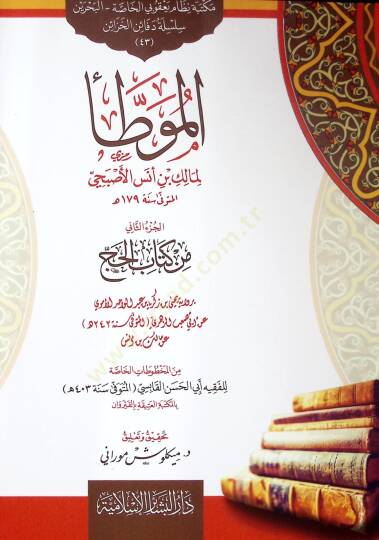 مكتبة نظام يعقوبي الخاصة - البحرين
سلسلة دفائن الخزائن
(٤٣)
الموطأ
لمالك بن أنس الأصبحي
المتوفى سنة ١٧٩هـ
الجزء الثاني
من كتاب الحج
برواية يحيى بن زكريا بن عبد الواحد الأموي
عن أبي مصعب الزهري (المتوفى سنة ٢٤٢هـ)
عن مالك بن أنس
من المخطوطات الخاصة
للفقيه أبي الحسن القابسي (المتوفى سنة ٤٠٣هـ)
بالمكتبة العتيقة بالقيروان
تحقيق وتعليق
د. ميكلوش موراني
دار البشائر الإسلامية